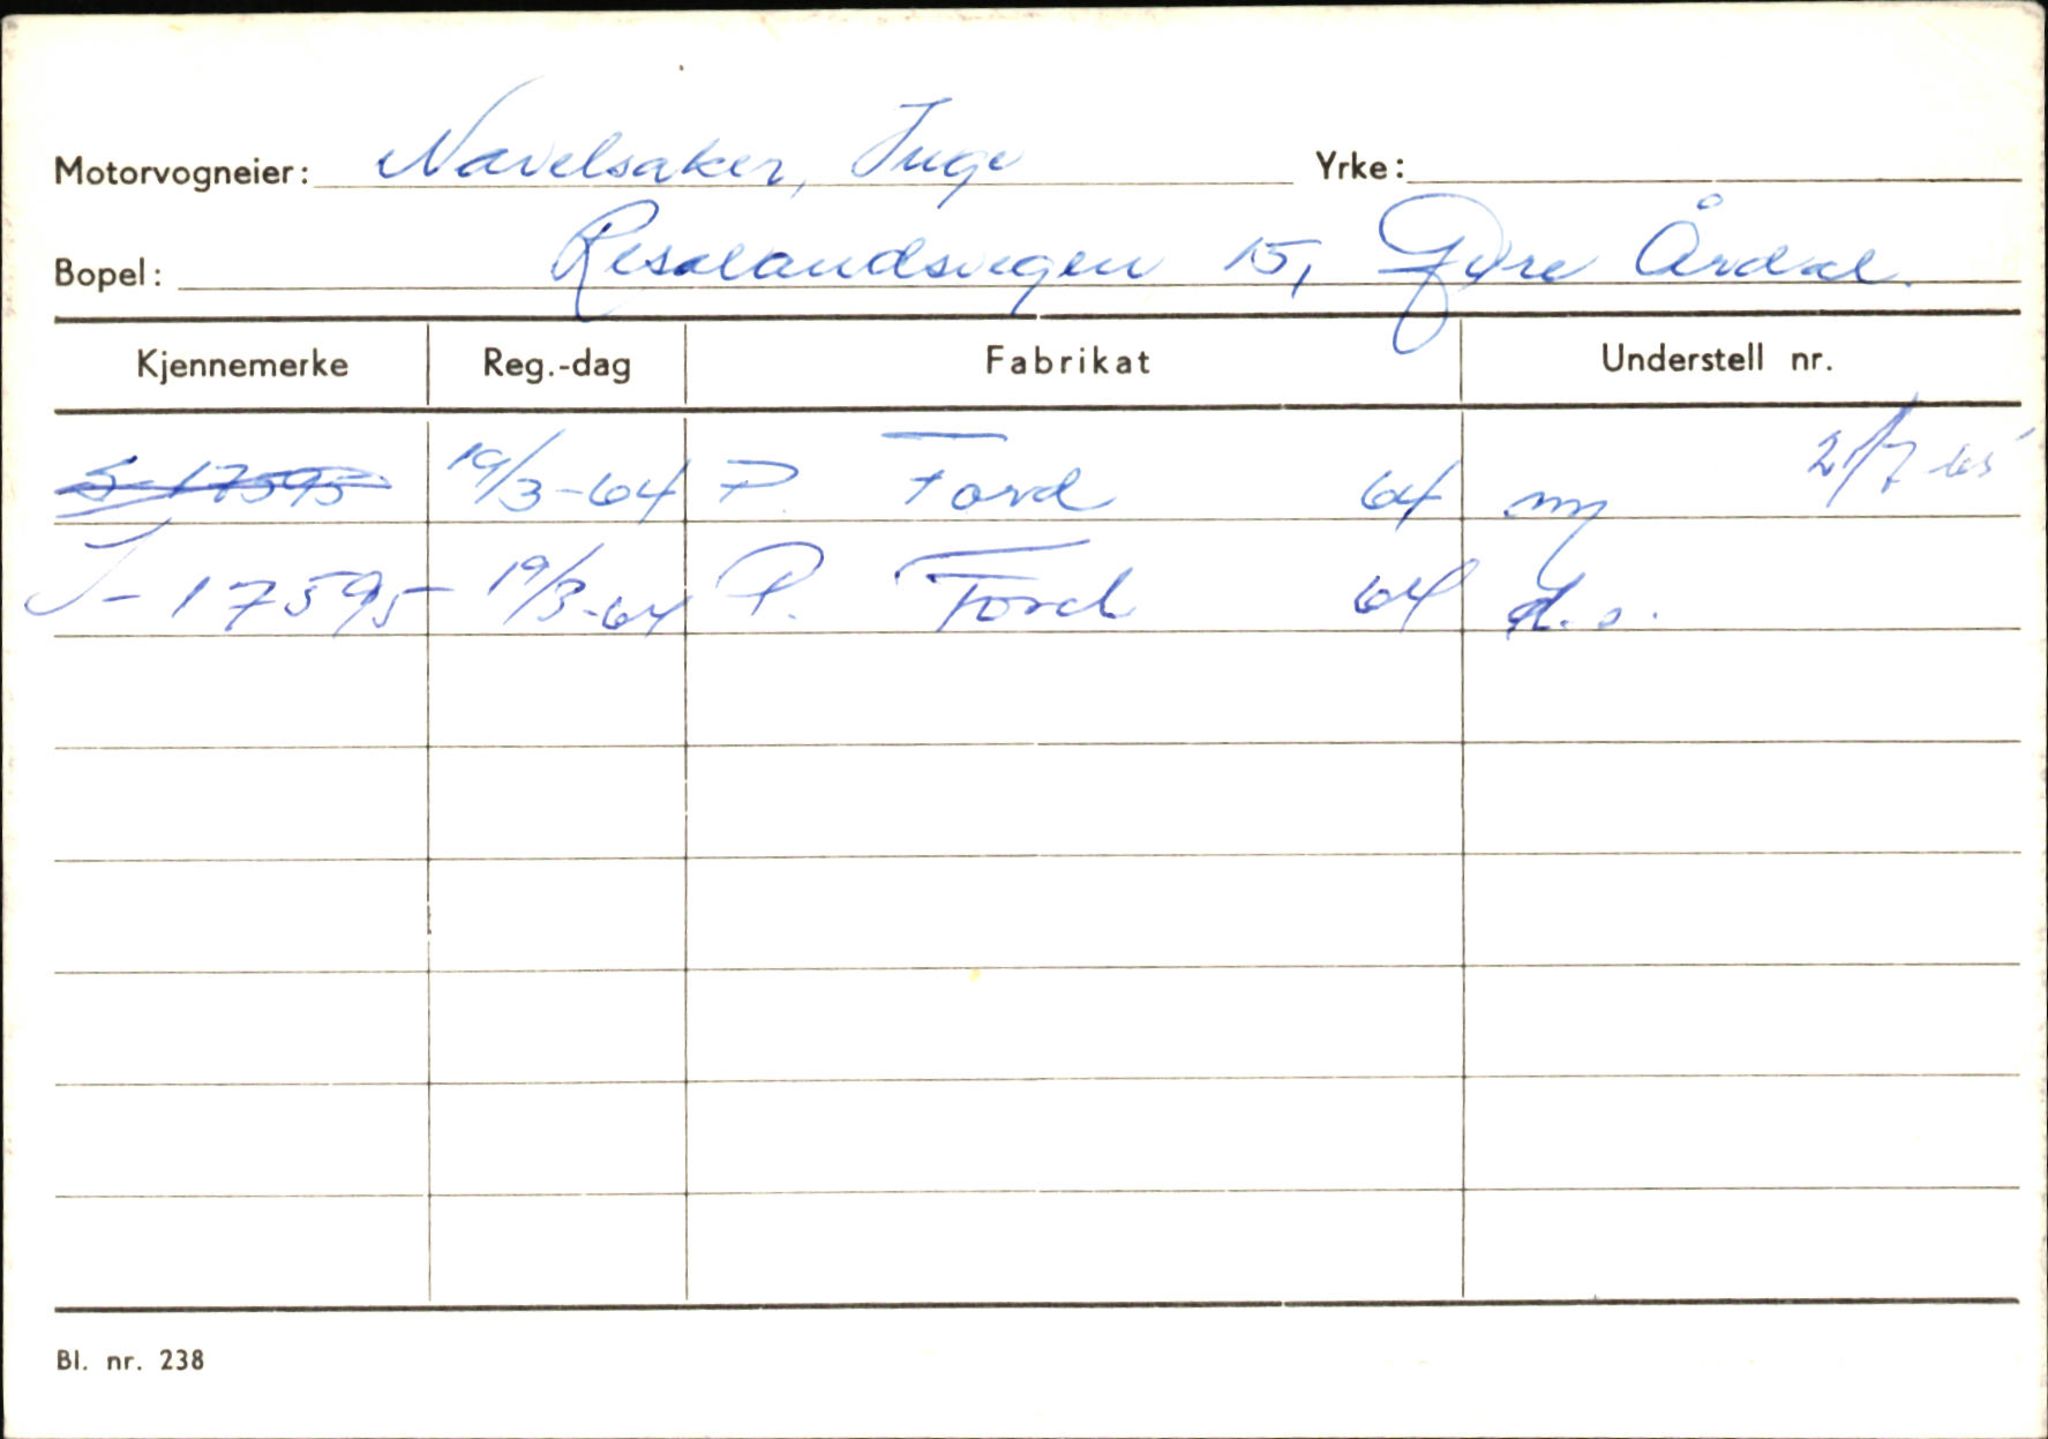 Motorvogneier: Navelsaker, Inge Yrke:
Bopel: 15, Øvre Årdal.
Kjennemerke Reg.-dag Fabrikat Understell nr.
S-17595 19/3-64 P. Ford 64 ny 21/7 65
S-17595 19/3-64 P. Ford 64 d.s.
Bl. nr. 238